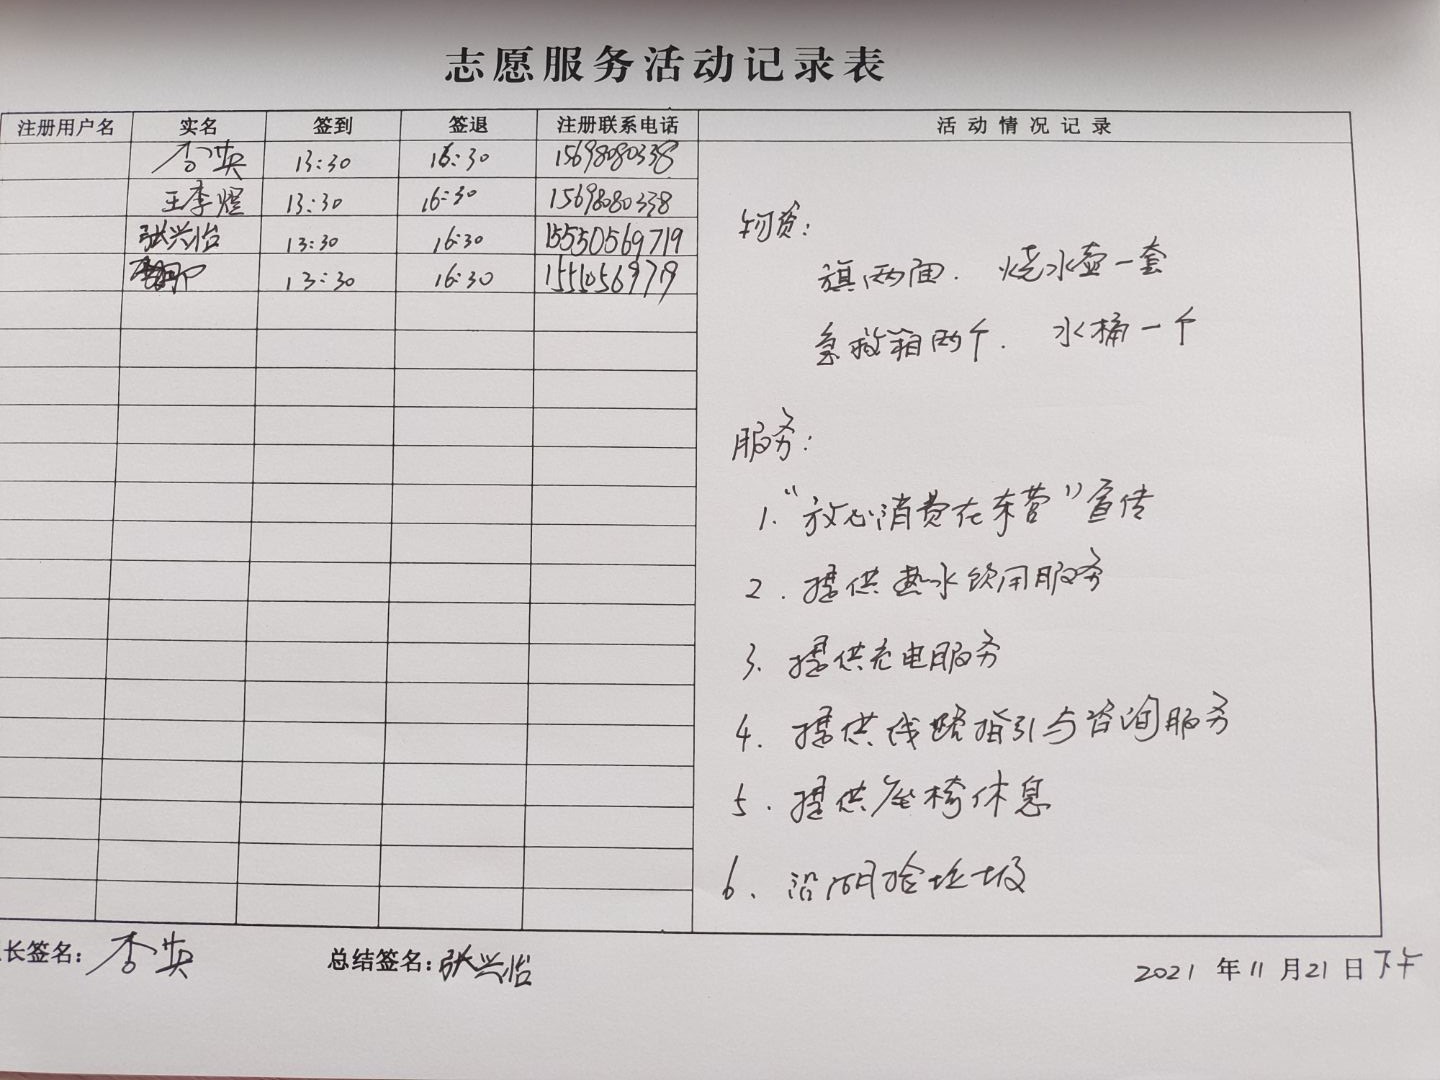 志愿服务活动记录表
注册用户名 实名 签到 签退 注册联系电话 活动情况记录
李英 13:30 16:30 15698080338
王李煜 13:30 16:30 15698080338
张兴怡 13:30 16:30 15550569719
13:30 16:30
物资:
旗两面. 烧水壶一套
急救箱两个. 水桶一个
服务:
1. “放心消费在东营”宣传
2. 提供热水饮用服务
3. 提供充电服务
4. 提供线路指引与咨询服务
5. 提供座椅休息
6. 沿湖捡垃圾
长签名: 李英 总结签名: 张兴怡 2021 年 11 月 21 日 下午